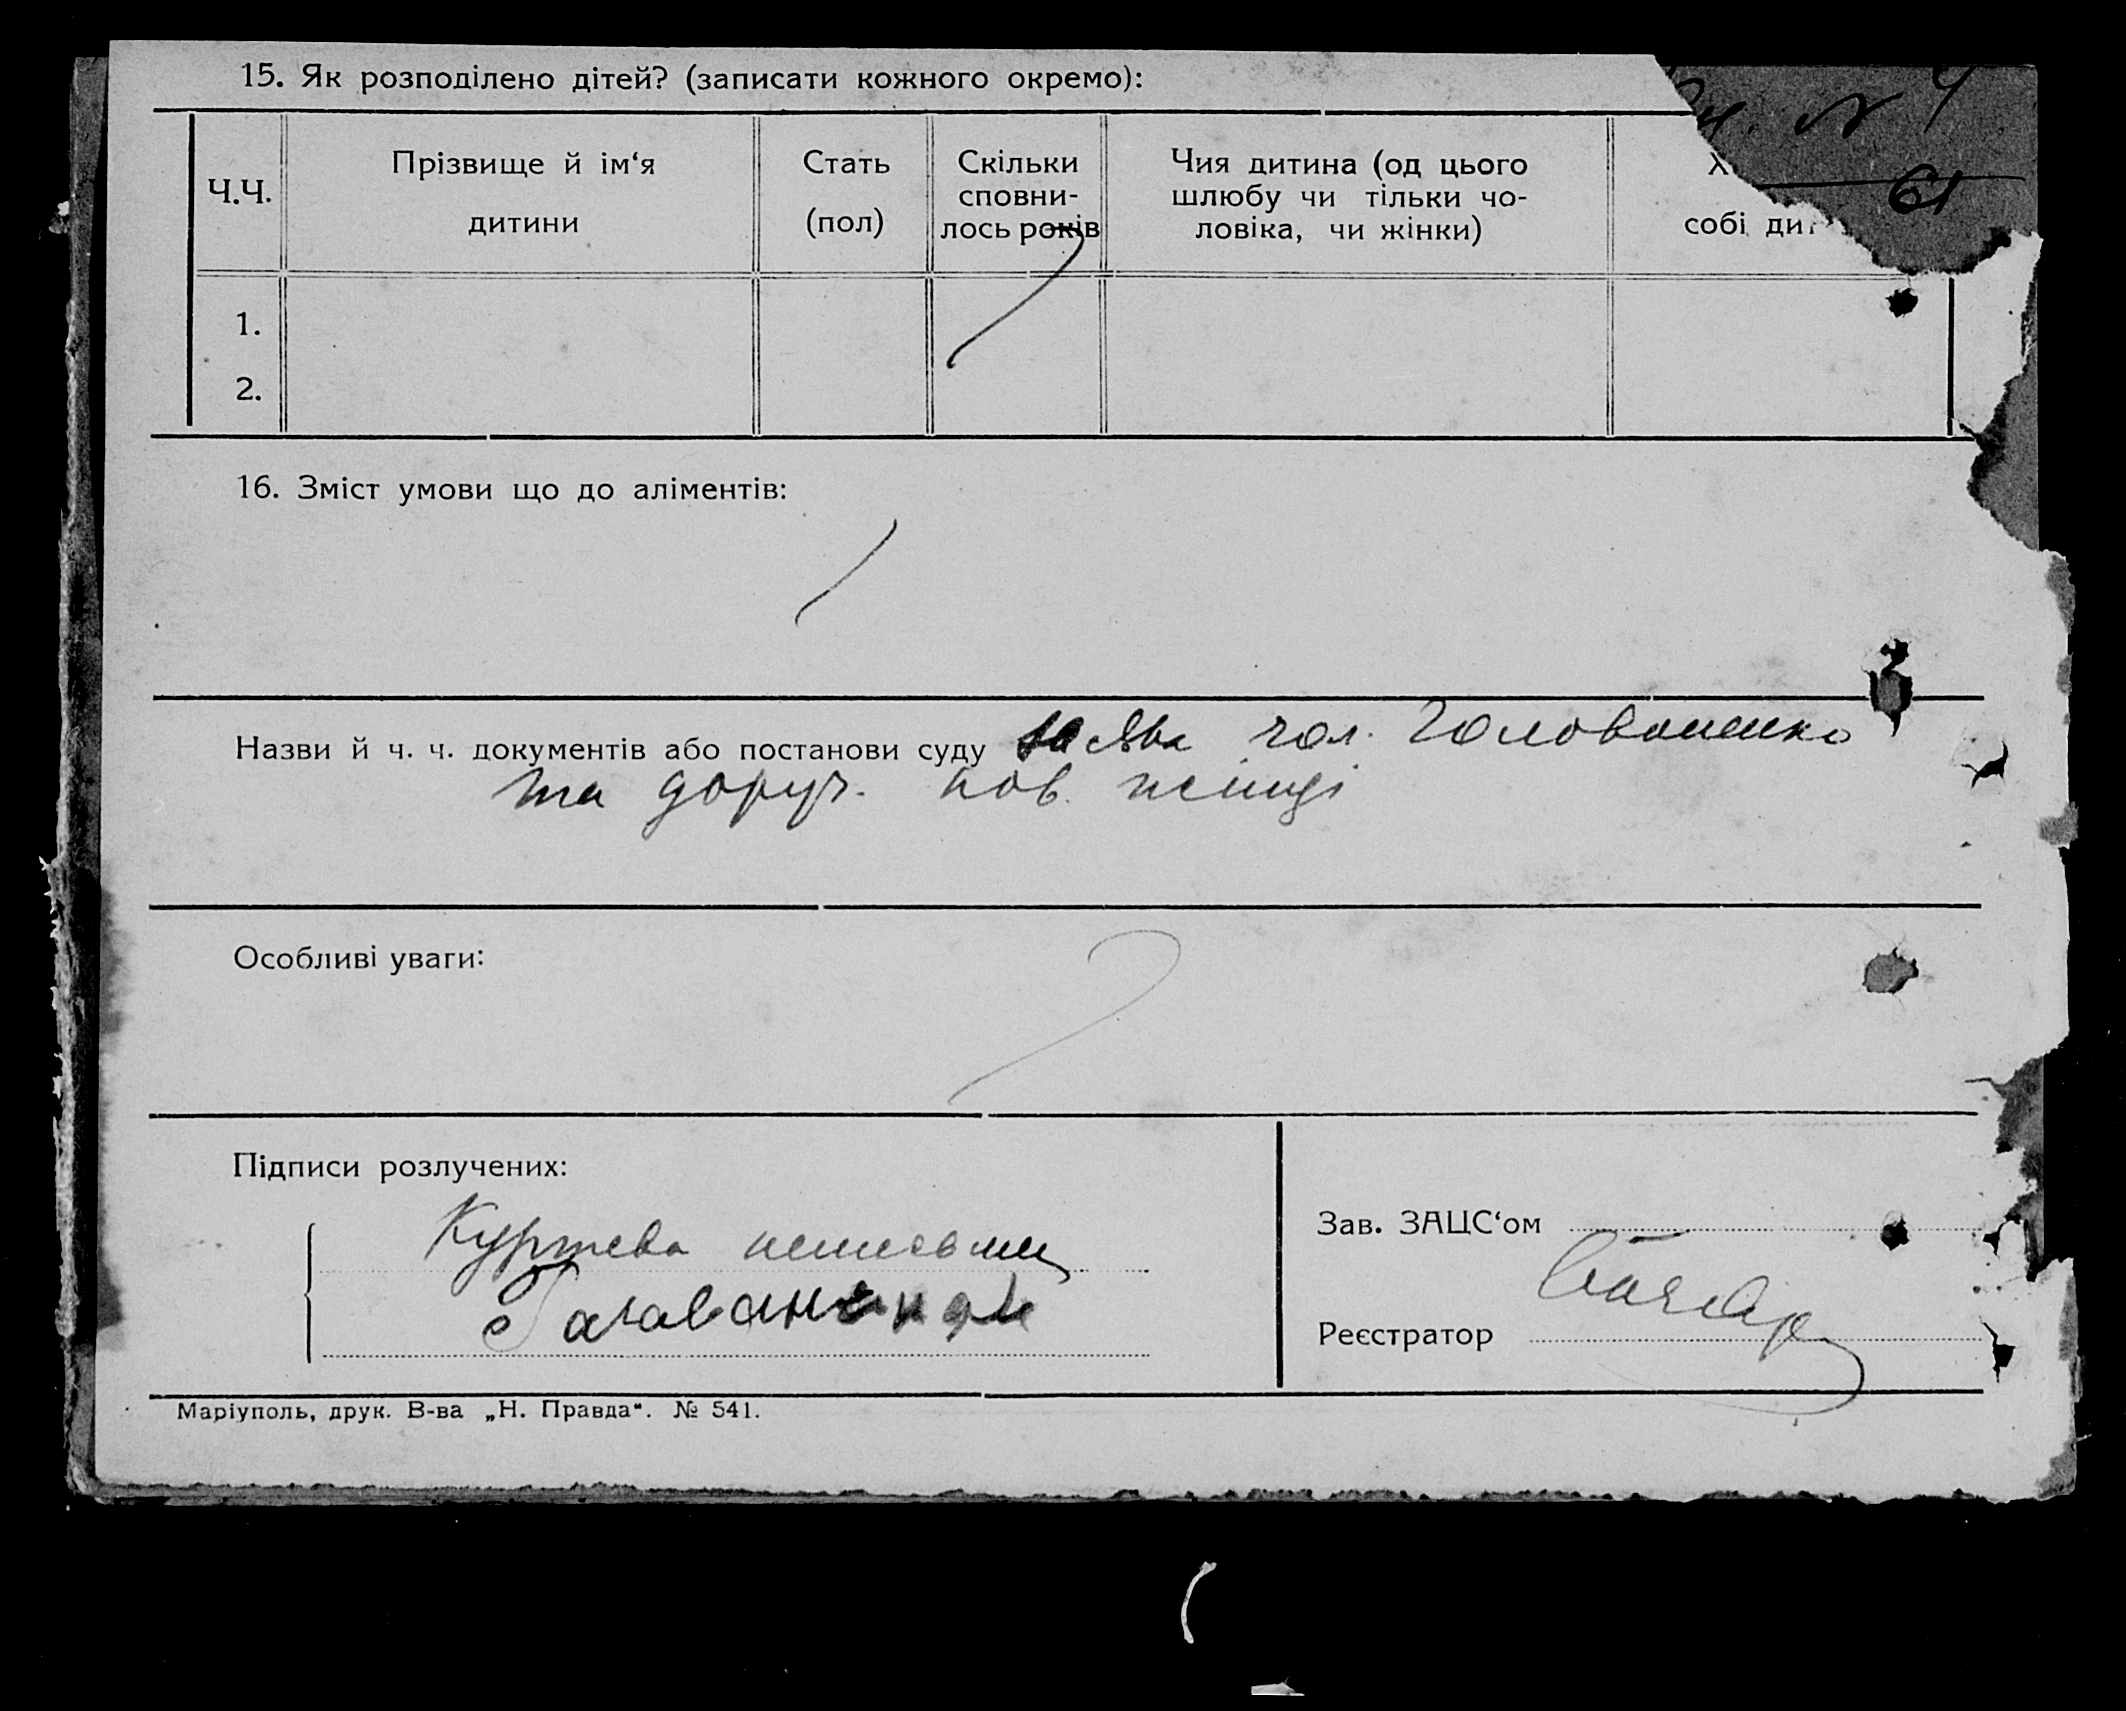 15. Як розподілено дітей? (записати кожного окремо):
№ 4
61
Ч.Ч.
Прізвище й ім‘я
дитини
Стать
(пол)
Скільки
сповни-
лось років
Чия дитина (од цього
шлюбу чи тільки чо-
ловіка, чи жінки)
собі
1.
2.
16. Зміст умови що до аліментів:
Назви й ч. ч. документів або постанови суду заява чол. Головоненко
та доруч. пов. жінці
Особливі уваги:
Підписи розлучених:
неписьмен
Зав. ЗАЦС‘ом
Реєстратор
Маріуполь, друк. В-ва „Н. Правда“. № 541.